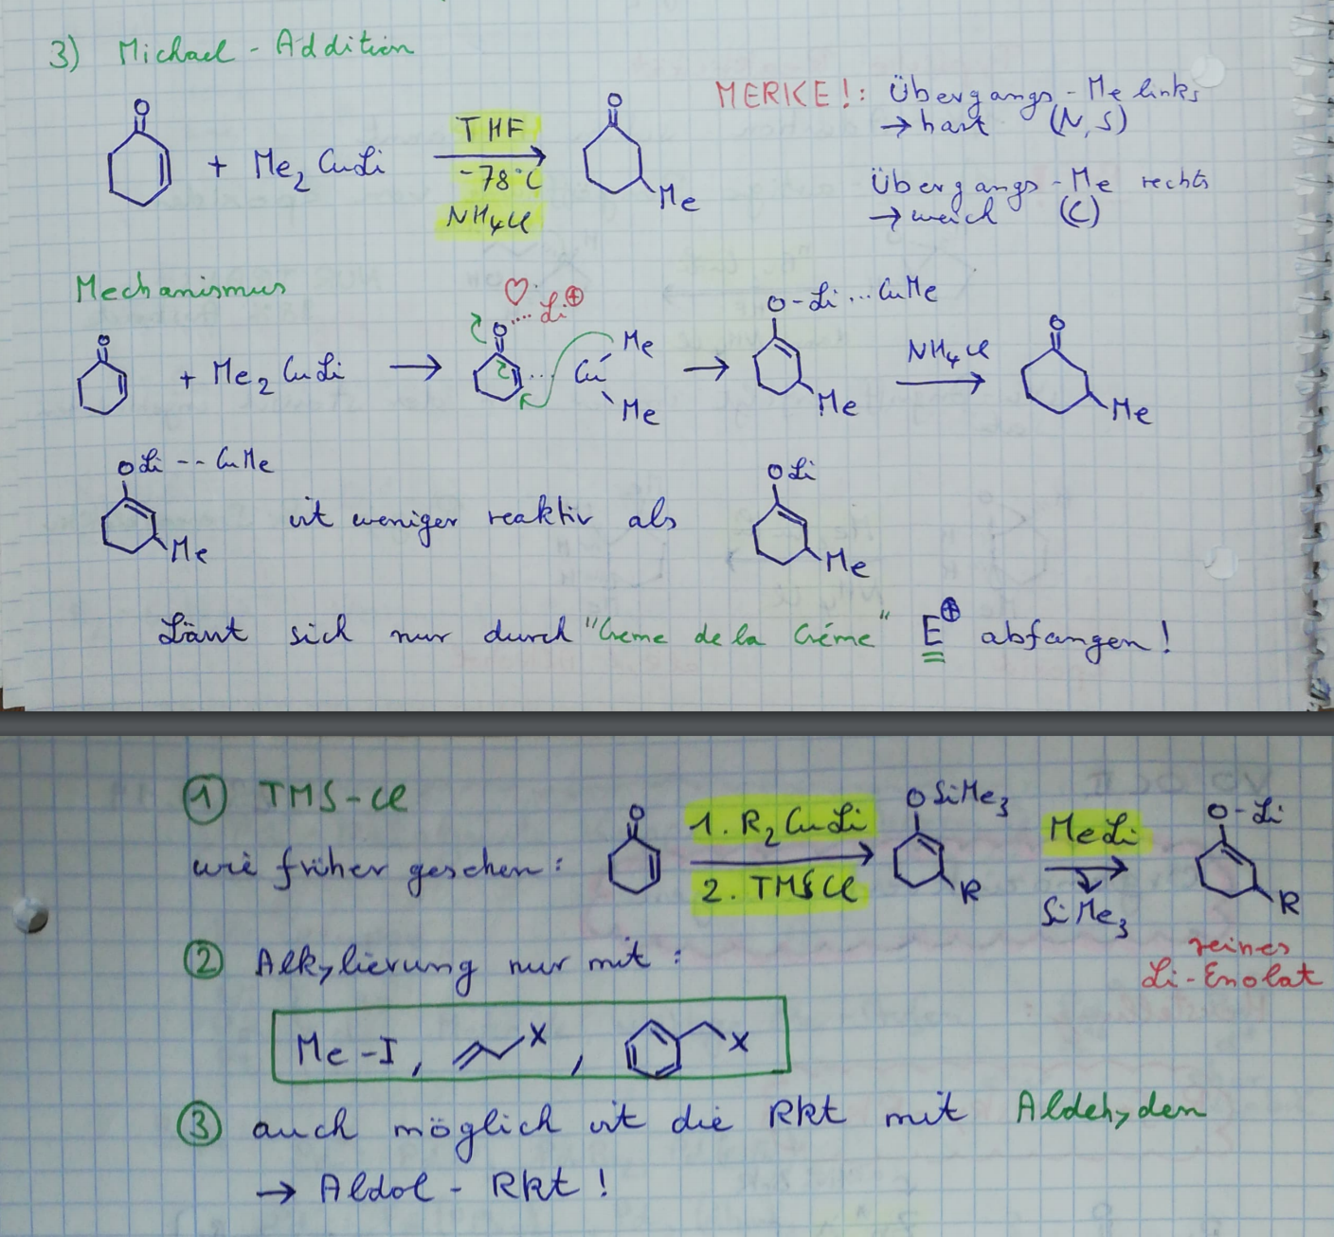 3) Michael - Addition
MERKE!: Übergangs - Me links
→ hart (N, S)
Übergangs - Me rechts
→ weich (C)
O
+ Me2 CuLi
THF
-78°C
NH4Cl
O
Me
Mechanismus
O
+ Me2 CuLi →
♡
O ... Li⊕
... Cu
Me
Me
→
O - Li ... CuMe
Me
NH4Cl
O
Me
OLi -- CuMe
Me
ist weniger reaktiv als
OLi
Me
Lässt sich nur durch "Creme de la Créme" E⊕ abfangen!
① TMS-Cl
wie früher gesehen:
O
1. R2CuLi
2. TMSCl
O SiMe3
R
MeLi
SiMe3
O - Li
R
reines
Li-Enolat
② Alkylierung nur mit:
Me - I, X, X
③ auch möglich ist die Rkt mit Aldehyden
→ Aldol - Rkt!